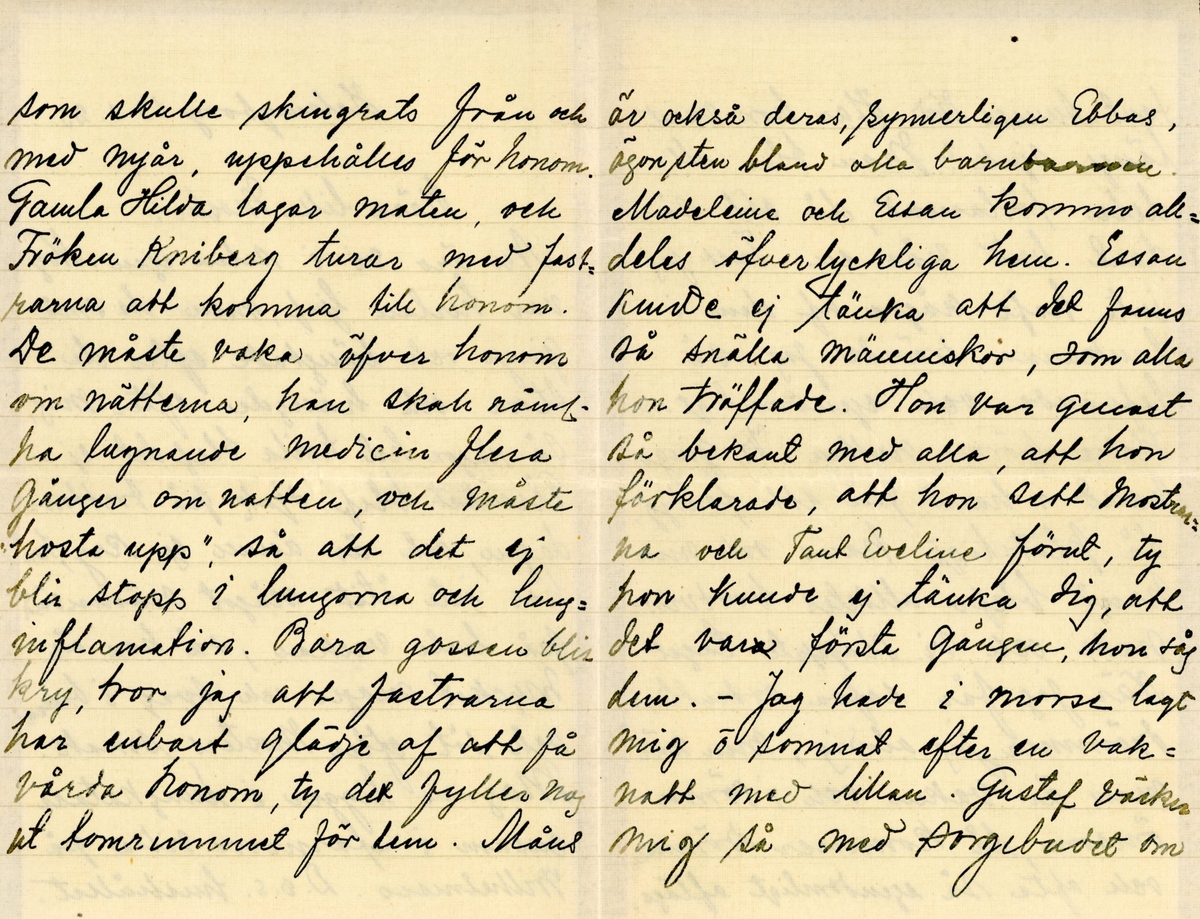 som skulle skingrats från och
med nyår, uppehålles för honom.
Gamla Hilda lagar maten, och
Fröken Kniberg turar med fast=
rarna att komma till honom.
De måste vaka öfver honom
om nätterna, han skall näml-
ha lugnande medicin flera
gånger om natten, och måste
"hosta upp", så att det ej
blir stopp i lungorna och lung=
inflamation. Bara gossen blir
kry, tror jag att fastrarna
har enbart glädje af att få
vårda honom, ty det fyller nog
ut tomrummet för dem. Måns
är också deras, synnerligen Ebbas,
ögonsten bland alla barnbarnen.
Madeleine och Essan kommo all=
deles öfverlyckliga hem. Essan
kunde ej tänka att det fanns
så snälla människor, som alla
hon träffade. Hon var genast
så bekant med alla, att hon
förklarade, att hon sett Mostrar=
na och Tant Eveline förut, ty
hon kunde ej tänka sig, att
det vara första gången, hon såg
dem. – Jag hade i morse lagt
mig o somnat efter en vak=
natt med lillan. Gustaf väcker
mig så med sorgebudet om